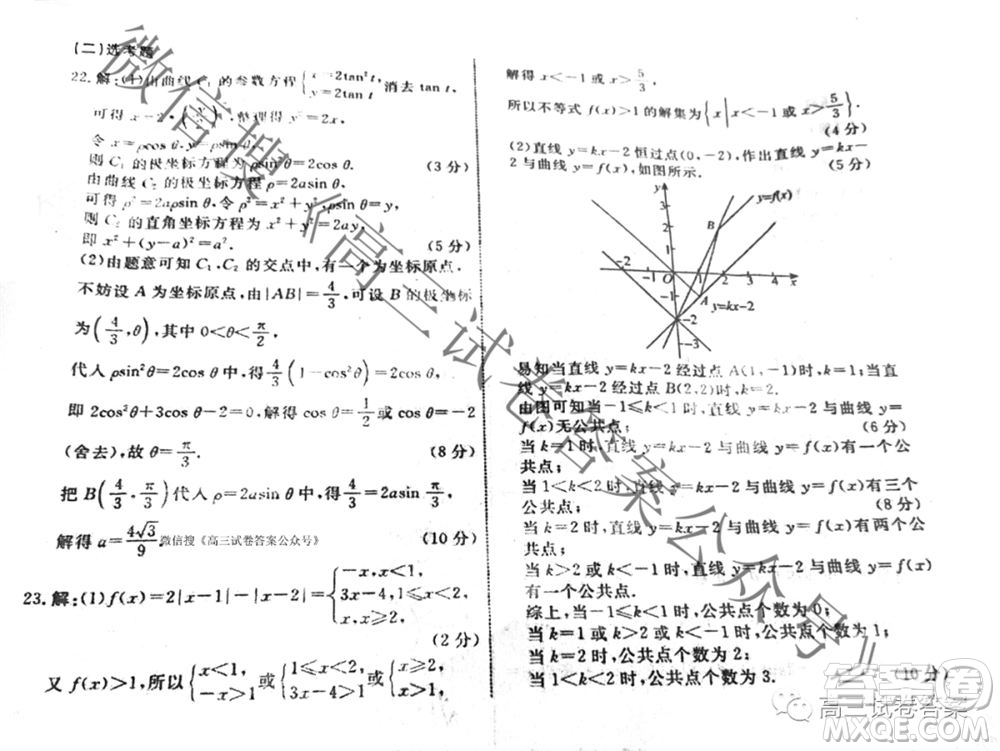 (二)选考题
22.解:(1)由曲线 C₁ 的参数方程{x=2tan²t, y=2tan t 消去 tan t,
可得 x=2·(y/2)²,整理得
令 x=ρcos θ,
则 C₁ 的极坐标方程为 ρsin²θ=2cos θ. (3 分)
由曲线 C₂ 的极坐标方程 ρ=2asin θ,
可得 ρ²=2aρsin θ,令 ρ²=x²+y²,ρsin θ=y,
则 C₂ 的直角坐标方程为 x²+y²=2ay,
即 x²+(y-a)²=a². (5 分)
(2)由题意可知 C₁,C₂ 的交点中,有一个为坐标原点.
不妨设 A 为坐标原点,由|AB|=4/3,可设 B 的极坐标
为(4/3,θ),其中 0<θ<π/2.
代入 ρsin²θ=2cos θ 中,得 4/3(1-cos²θ)=2cos θ,
即 2cos²θ+3cos θ-2=0,解得 cos θ=1/2 或 cos θ=-2
(舍去),故 θ=π/3. (8 分)
把 B(4/3,π/3)代入 ρ=2asin θ 中,得 4/3=2asin π/3,
解得 a=4√3/9. 微信搜《高三试卷答案公众号》 (10 分)
23.解:(1)f(x)=2|x-1|-|x-2|={-x,x<1, 3x-4,1≤x≤2, x,x>2,
(2 分)
又 f(x)>1,所以{x<1, -x>1 或{1≤x≤2, 3x-4>1 或{x>2, x>1,
解得 x<-1 或 x>5/3.
所以不等式 f(x)>1 的解集为{x|x<-1 或 x>5/3}.
(4 分)
(2)直线 y=kx-2 恒过点(0,-2),作出直线 y=kx-
2 与曲线 y=f(x),如图所示. (5 分)
y
3
y=f(x)
2
B
1
-2 -1 O 1 2 3 4 x
-1
A
y=kx-2
-2
-3
易知当直线 y=kx-2 经过点 A(1,-1)时,k=1;当直
线 y=kx-2 经过点 B(2,2)时,k=2.
由图可知当-1≤k<1 时,直线 y=kx-2 与曲线 y=
f(x)无公共点; (6 分)
当 k=1 时,直线 y=kx-2 与曲线 y=f(x)有一个公
共点;
当 1<k<2 时,直线 y=kx-2 与曲线 y=f(x)有三个
公共点; (8 分)
当 k=2 时,直线 y=kx-2 与曲线 y=f(x)有两个公
共点;
当 k<-1 或 k>2 时,直线 y=kx-2 与曲线 y=f(x)
有一个公共点.
综上,当-1≤k<1 时,公共点个数为 0;
当 k=1 或 k>2 或 k<-1 时,公共点个数为 1;
当 k=2 时,公共点个数为 2;
当 1<k<2 时,公共点个数为 3. (10 分)
微信搜《高三试卷答案公众号》
答案圈
高三试卷答案